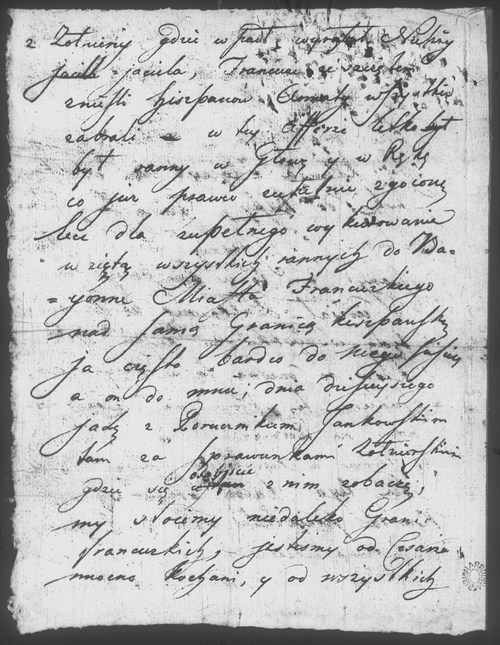 z Żołnierzy gdzie wpadł, wyrąbał Nieprzy
jaciela, Francuzi
znieśli Hiszpanow Armaty wszystkie
zabrali = w tey Afferze lekko był
był ranny w Głowę y w Rękę
co już prawie zupełnie zgoione
lecz dla zupełnego wykurowania
wzięto wszystkich rannych do Ba-
= yonne Miasta Francuzkiego
nad samą Granicą Hiszpańską
ja często bardzo do niego piszę
a on do mnie; dnia dzisieyszego
jadę z Porucznikiem Jankowskim
tam za sprawunkami Żołnierskiemi
gdzie się osobiście z nim zobaczę,
my stoiemy niedaleko Granic
francuzkich, jesteśmy od Cesarza
mocno kochani, y od wszystkich